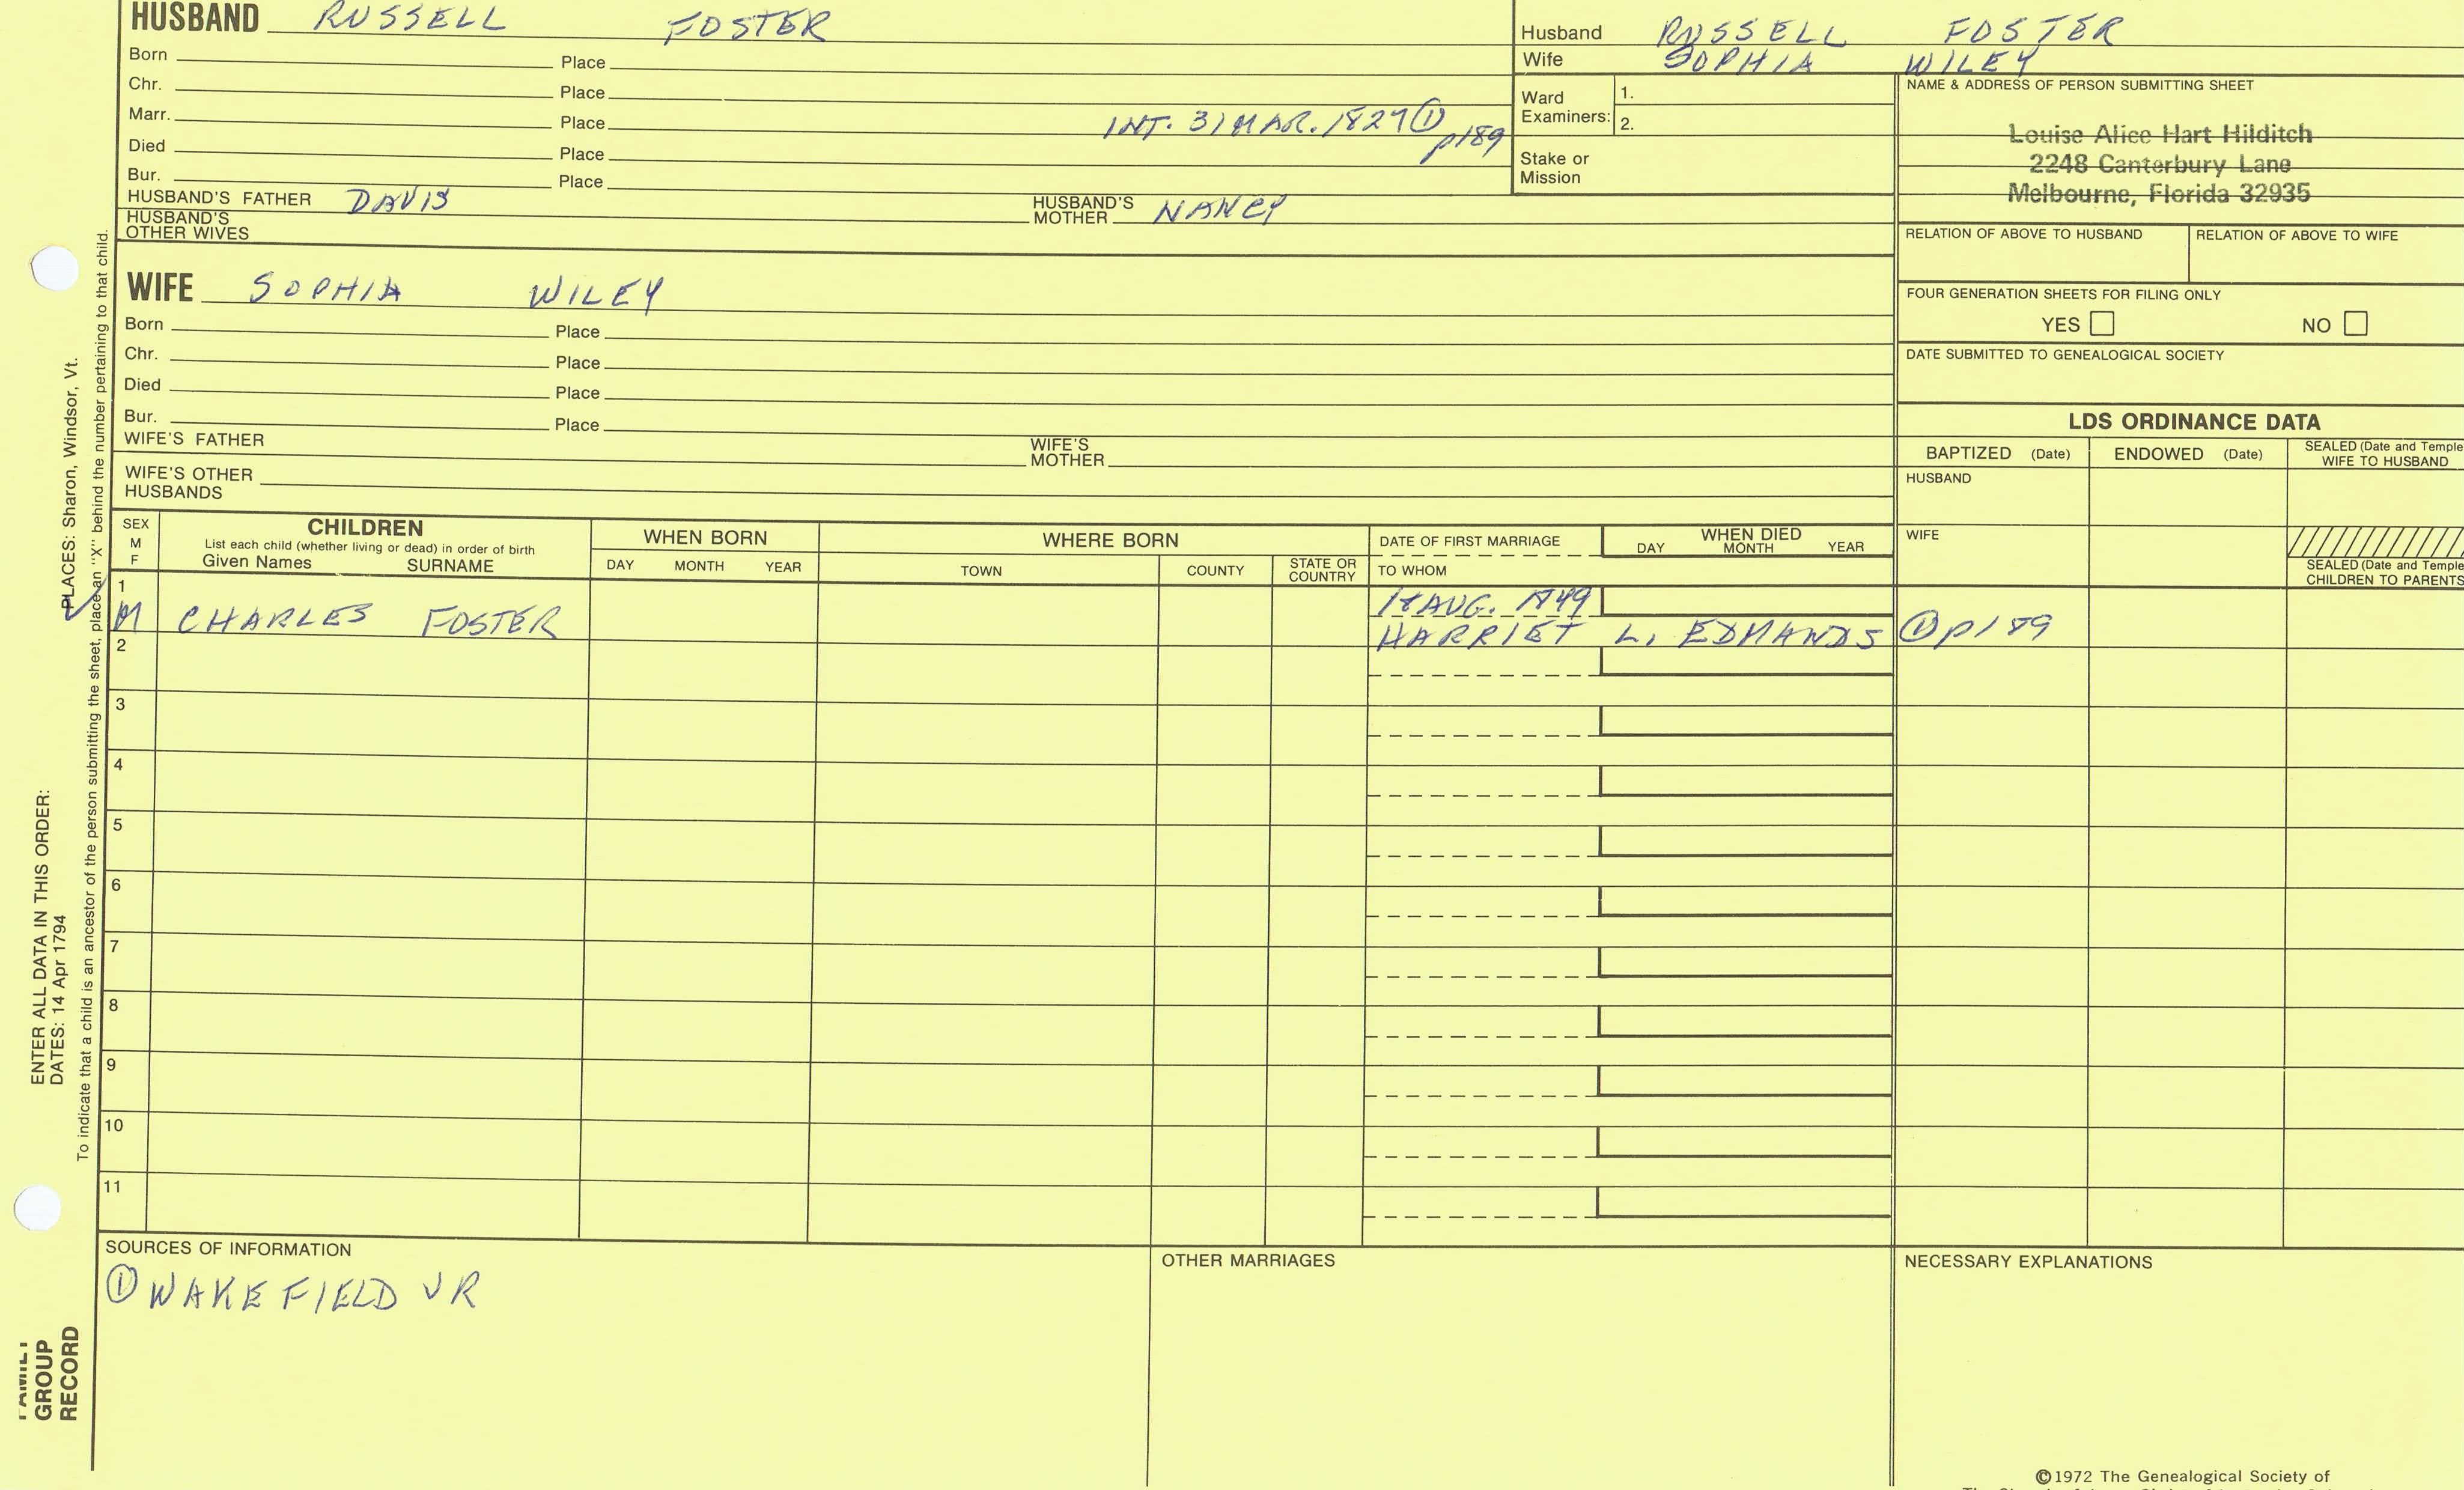 HUSBAND RUSSELL FOSTER
Born Place
Chr. Place
Marr. Place INT. 31 MAR. 1827 ① p189
Died Place
Bur. Place
HUSBAND'S FATHER DAVIS HUSBAND'S MOTHER NANCY
HUSBAND'S OTHER WIVES
Husband RUSSELL FOSTER
Wife SOPHIA WILEY
Ward Examiners: 1.
2.
Stake or Mission
NAME & ADDRESS OF PERSON SUBMITTING SHEET
Louise Alice Hart Hilditch
2248 Canterbury Lane
Melbourne, Florida 32935
RELATION OF ABOVE TO HUSBAND RELATION OF ABOVE TO WIFE
FOUR GENERATION SHEETS FOR FILING ONLY
YES NO
DATE SUBMITTED TO GENEALOGICAL SOCIETY
WIFE SOPHIA WILEY
Born Place
Chr. Place
Died Place
Bur. Place
WIFE'S FATHER WIFE'S MOTHER
WIFE'S OTHER HUSBANDS
LDS ORDINANCE DATA
BAPTIZED (Date) ENDOWED (Date) SEALED (Date and Temple
WIFE TO HUSBAND
HUSBAND
WIFE
SEALED (Date and Temple
CHILDREN TO PARENTS
SEX
M
F
CHILDREN
List each child (whether living or dead) in order of birth
Given Names SURNAME
WHEN BORN
DAY MONTH YEAR
WHERE BORN
TOWN COUNTY STATE OR COUNTRY
DATE OF FIRST MARRIAGE
TO WHOM
WHEN DIED
DAY MONTH YEAR
1
M CHARLES FOSTER AUG. 1849
HARRIET L. EDMANDS ① p189
2
3
4
5
6
7
8
9
10
11
SOURCES OF INFORMATION
① WAKEFIELD VR
OTHER MARRIAGES
NECESSARY EXPLANATIONS
©1972 The Genealogical Society of
PLACES: Sharon, Windsor, Vt.
ENTER ALL DATA IN THIS ORDER:
DATES: 14 Apr 1794
To indicate that a child is an ancestor of the person submitting the sheet, place an "X" behind the number pertaining to that child.
FAMILY
GROUP
RECORD